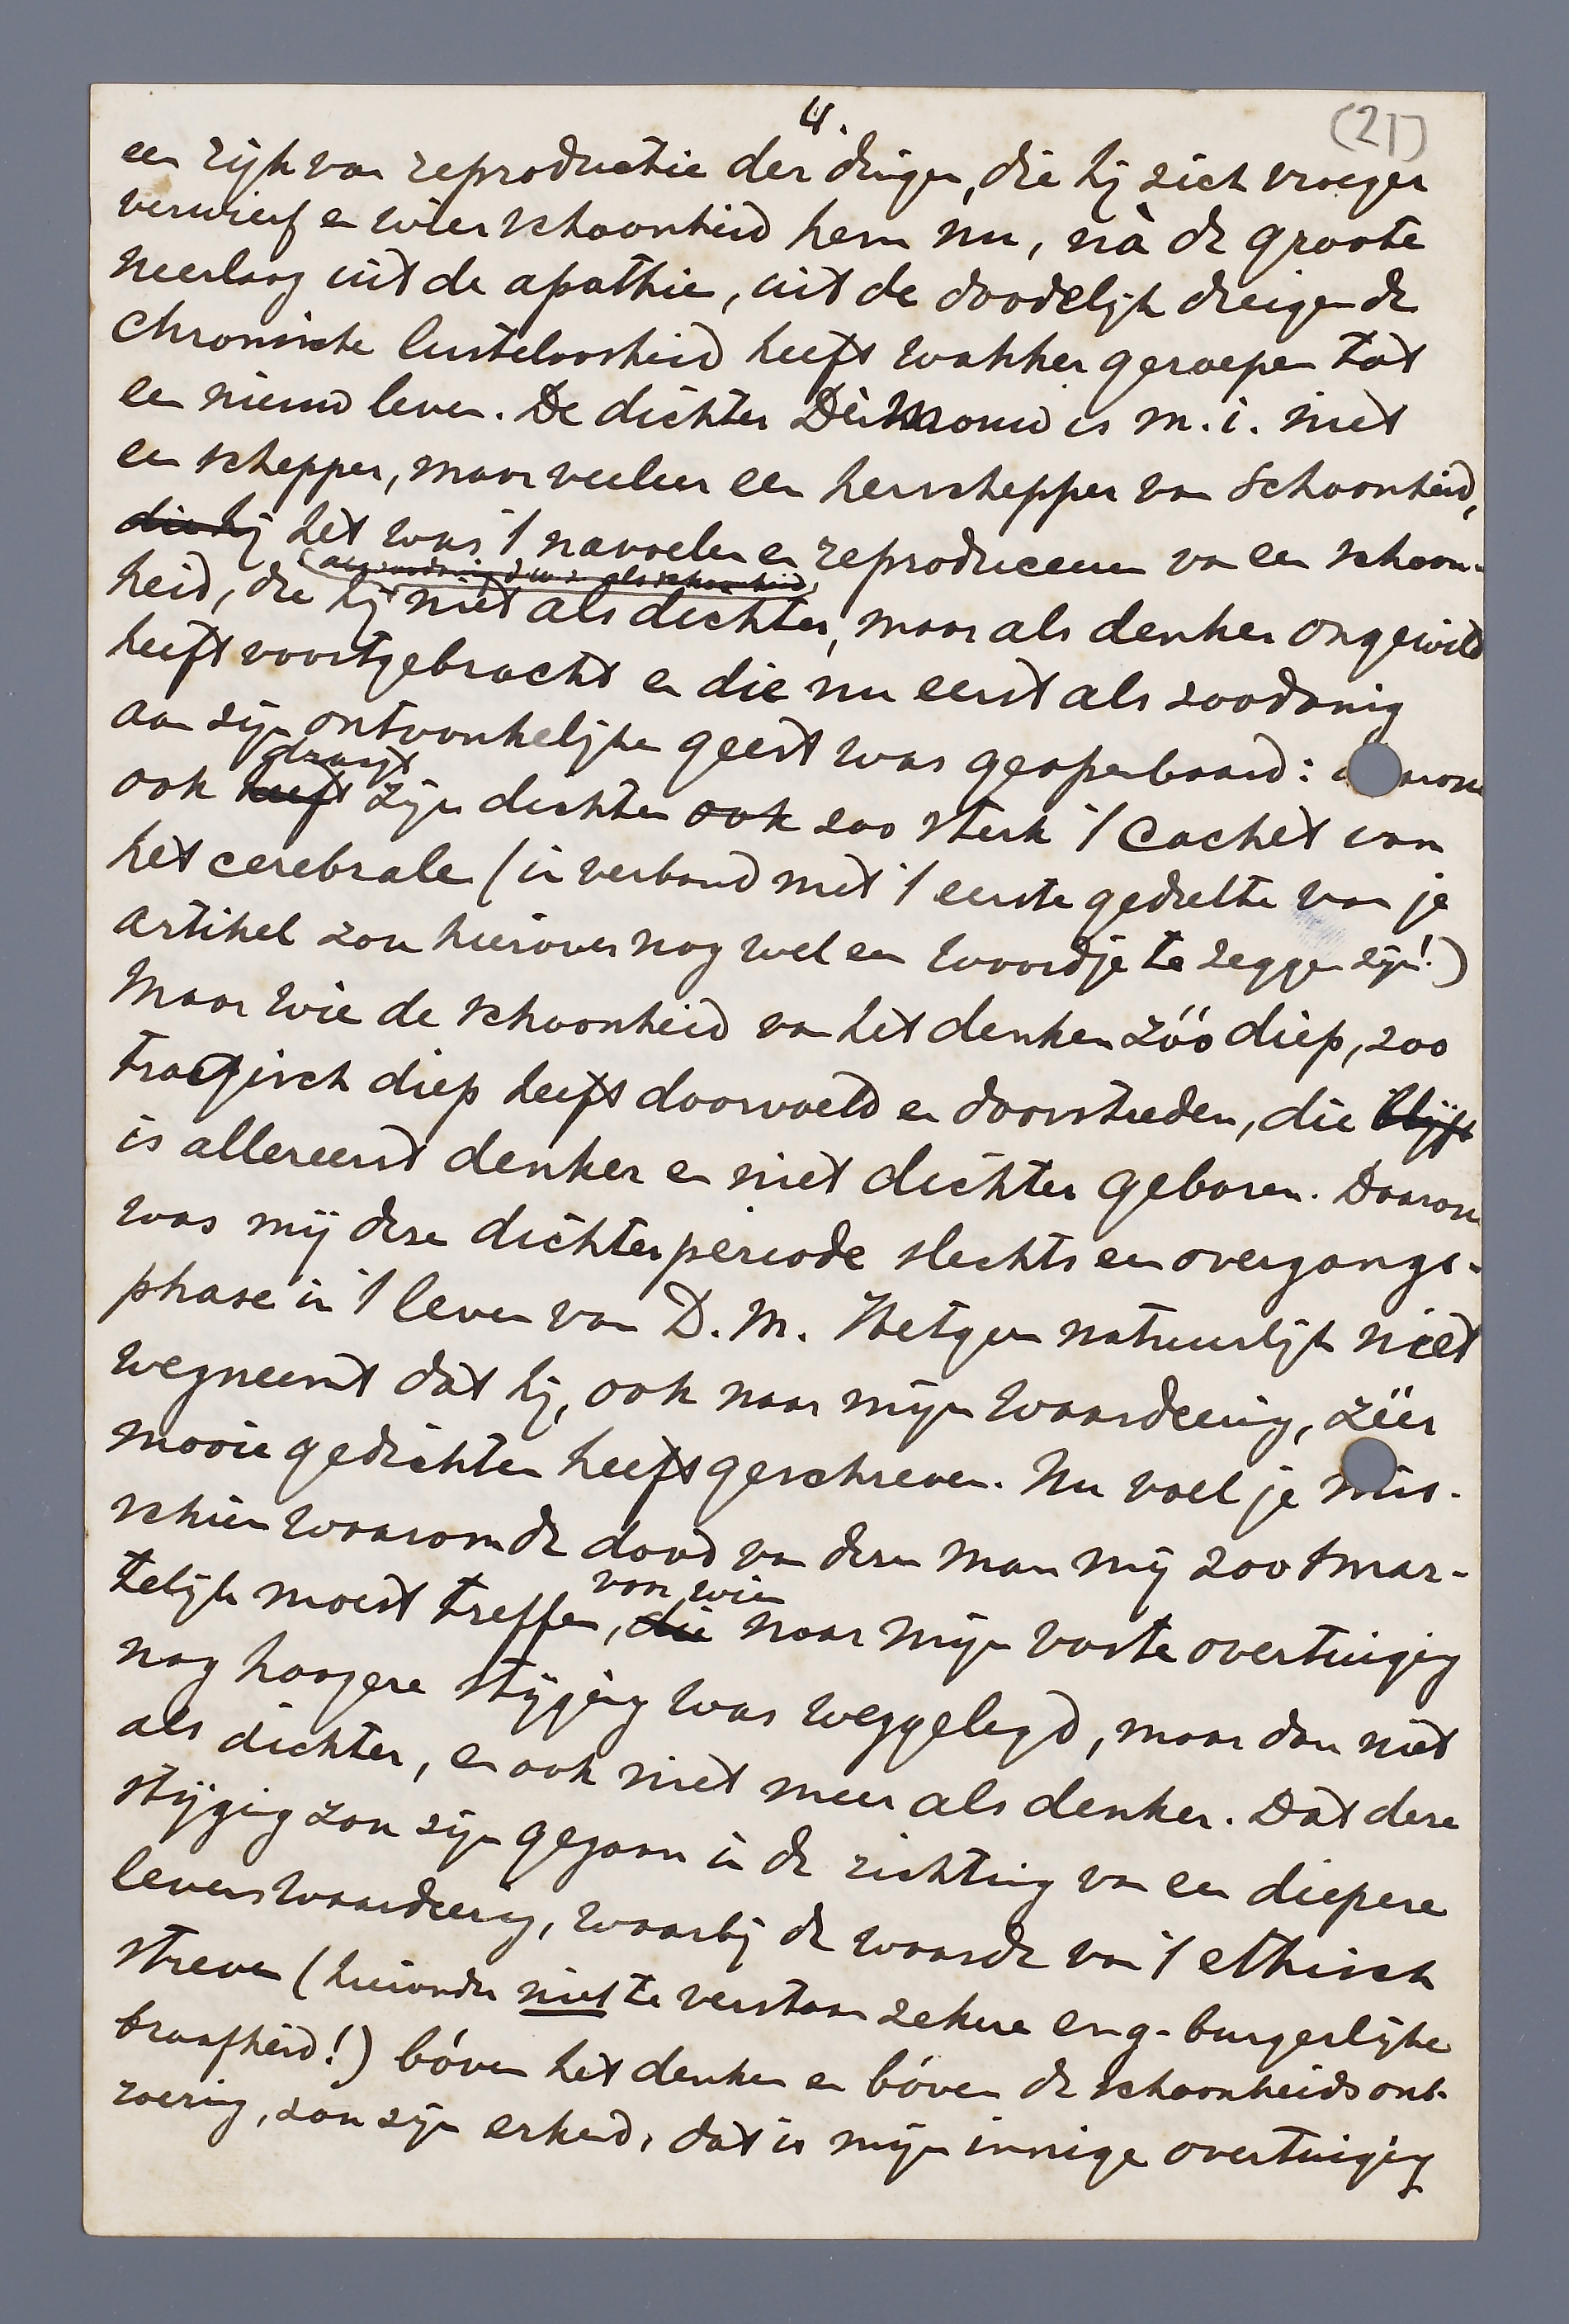 4.
(21)
een rijk van reproductie der dingen, die hij zich vroeger
verwierf en wier schoonheid hem nu, nà de groote
neerlaag uit de apathie, uit de doodelijk dreigende
chronische lusteloosheid heeft wakker geroepen tot
een nieuw leven. De dichter Dèr Mouw is m.i. niet
een schepper, maar veeleer een herschepper van schoonheid,
die hij het was 't navoelen en reproduceeren van een schoon-
als schoonheid
heid, die hij niet als dichter, maar als denker ongewild
heeft voortgebracht en die nu eerst als zoodanig
aan zijn ontvankelijke geest was geopenbaard:
draagt
ook heeft zijn dichten ook zoo sterk 't cachet van
het cerebrale (in verband met 't eerste gedeelte van je
artikel zou hierover nog wel een woordje te zeggen zijn!)
Maar wie de schoonheid van het denken zóó diep, zoo
tragisch diep heeft doorvoeld en doorstreden, die blijft
is allereerst denker en niet dichter geboren. Daarom
was mij deze dichterperiode slechts een overgangs-
phase in 't leven van D.M. Hetgeen natuurlijk niet
wegneemt dat hij, ook naar mijn waardeering, zéér
mooie gedichten heeft geschreven. Nu voel je mis-
schien waarom de dood van dezen man mij zoo smar-
voor wien
telijk moest treffen, die naar mijn vaste overtuiging
nog hoogere stijging was weggelegd, maar dan niet
als dichter, en ook niet meer als denker. Dat deze
stijging zou zijn gegaan in de richting van een diepere
levenswaardeering, waarbij de waarde van 't ethisch
streven (hieronder niet te verstaan zekere eng-burgerlijke
braafheid!) bóven het denken en bóven de schoonheidsont-
roering, zou zijn erkend, dat is mijn innige overtuiging